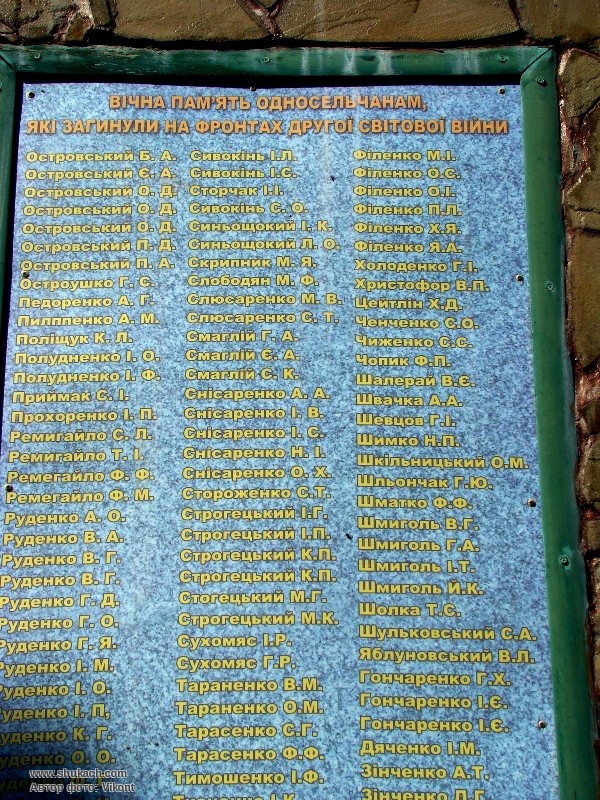 ВІЧНА ПАМ'ЯТЬ ОДНОСЕЛЬЧАНАМ,
ЯКІ ЗАГИНУЛИ НА ФРОНТАХ ДРУГОЇ СВІТОВОЇ ВІЙНИ
Островський Б. А.
Островський Є. А.
Островський О. Д.
Островський О. Д.
Островський О. Д.
Островський П. Д.
Островський П. А.
Остроушко Г. С.
Педоренко А. Г.
Пилппенко А. М.
Поліщук К. Л.
Полудненко І. О.
Полудненко І. Ф.
Приймак С. І.
Прохоренко І. П.
Ремигайло С. Л.
Ремигайло Т. І.
Ремегайло Ф. Ф.
Ремегайло Ф. М.
Руденко А. О.
Руденко В. А.
Руденко В. Г.
Руденко В. Г.
Руденко Г. Д.
Руденко Г. О.
Руденко Г. Я.
Руденко І. М.
Руденко І. О.
Руденко І. П,
Руденко К. Г.
Руденко О. О.
Сивокінь І.Л.
Сивокінь І.С.
Сторчак І.І.
Сивокінь С. О.
Синьощокий І. К.
Синьощокий Л. О.
Скрипник М. Я.
Слободян М. Ф.
Слюсаренко М. В.
Слюсаренко С. Т.
Смаглій Г. А.
Смаглій Є. А.
Смаглій С. К.
Снісаренко А. А.
Снісаренко І. В.
Снісаренко І. С.
Снісаренко Н. І.
Снісаренко О. Х.
Стороженко С.Т.
Строгецький І.Г.
Строгецький І.П.
Строгецький К.П.
Строгецький К.П.
Стогецький М.Г.
Строгецький М.К.
Сухомяс І.Р.
Сухомяс Г.Р.
Тараненко В.М.
Тараненко О.М.
Тарасенко С.Г.
Тарасенко Ф.Ф.
Тимошенко І.Ф.
Філенко М.І.
Філенко О.С.
Філенко О.І.
Філенко П.Л.
Філенко Х.Я.
Філенко Я.А.
Холоденко Г.І.
Христофор В.П.
Цейтлін Х.Д.
Ченченко С.О.
Чиженко С.С.
Чопик Ф.П.
Шалерай В.Є.
Швачка А.А.
Шевцов Г.І.
Шимко Н.П.
Шкільницький О.М.
Шльончак Г.Ю.
Шматко Ф.Ф.
Шмиголь В.Г.
Шмиголь Г.А.
Шмиголь І.Т.
Шмиголь Й.К.
Шолка Т.С.
Шульковський С.А.
Яблуновський В.Л.
Гончаренко Г.Х.
Гончаренко І.Є.
Гончаренко І.Є.
Дяченко І.М.
Зінченко А.Т.
Зінченко
www.shukach.com
Автор фото: Vikont